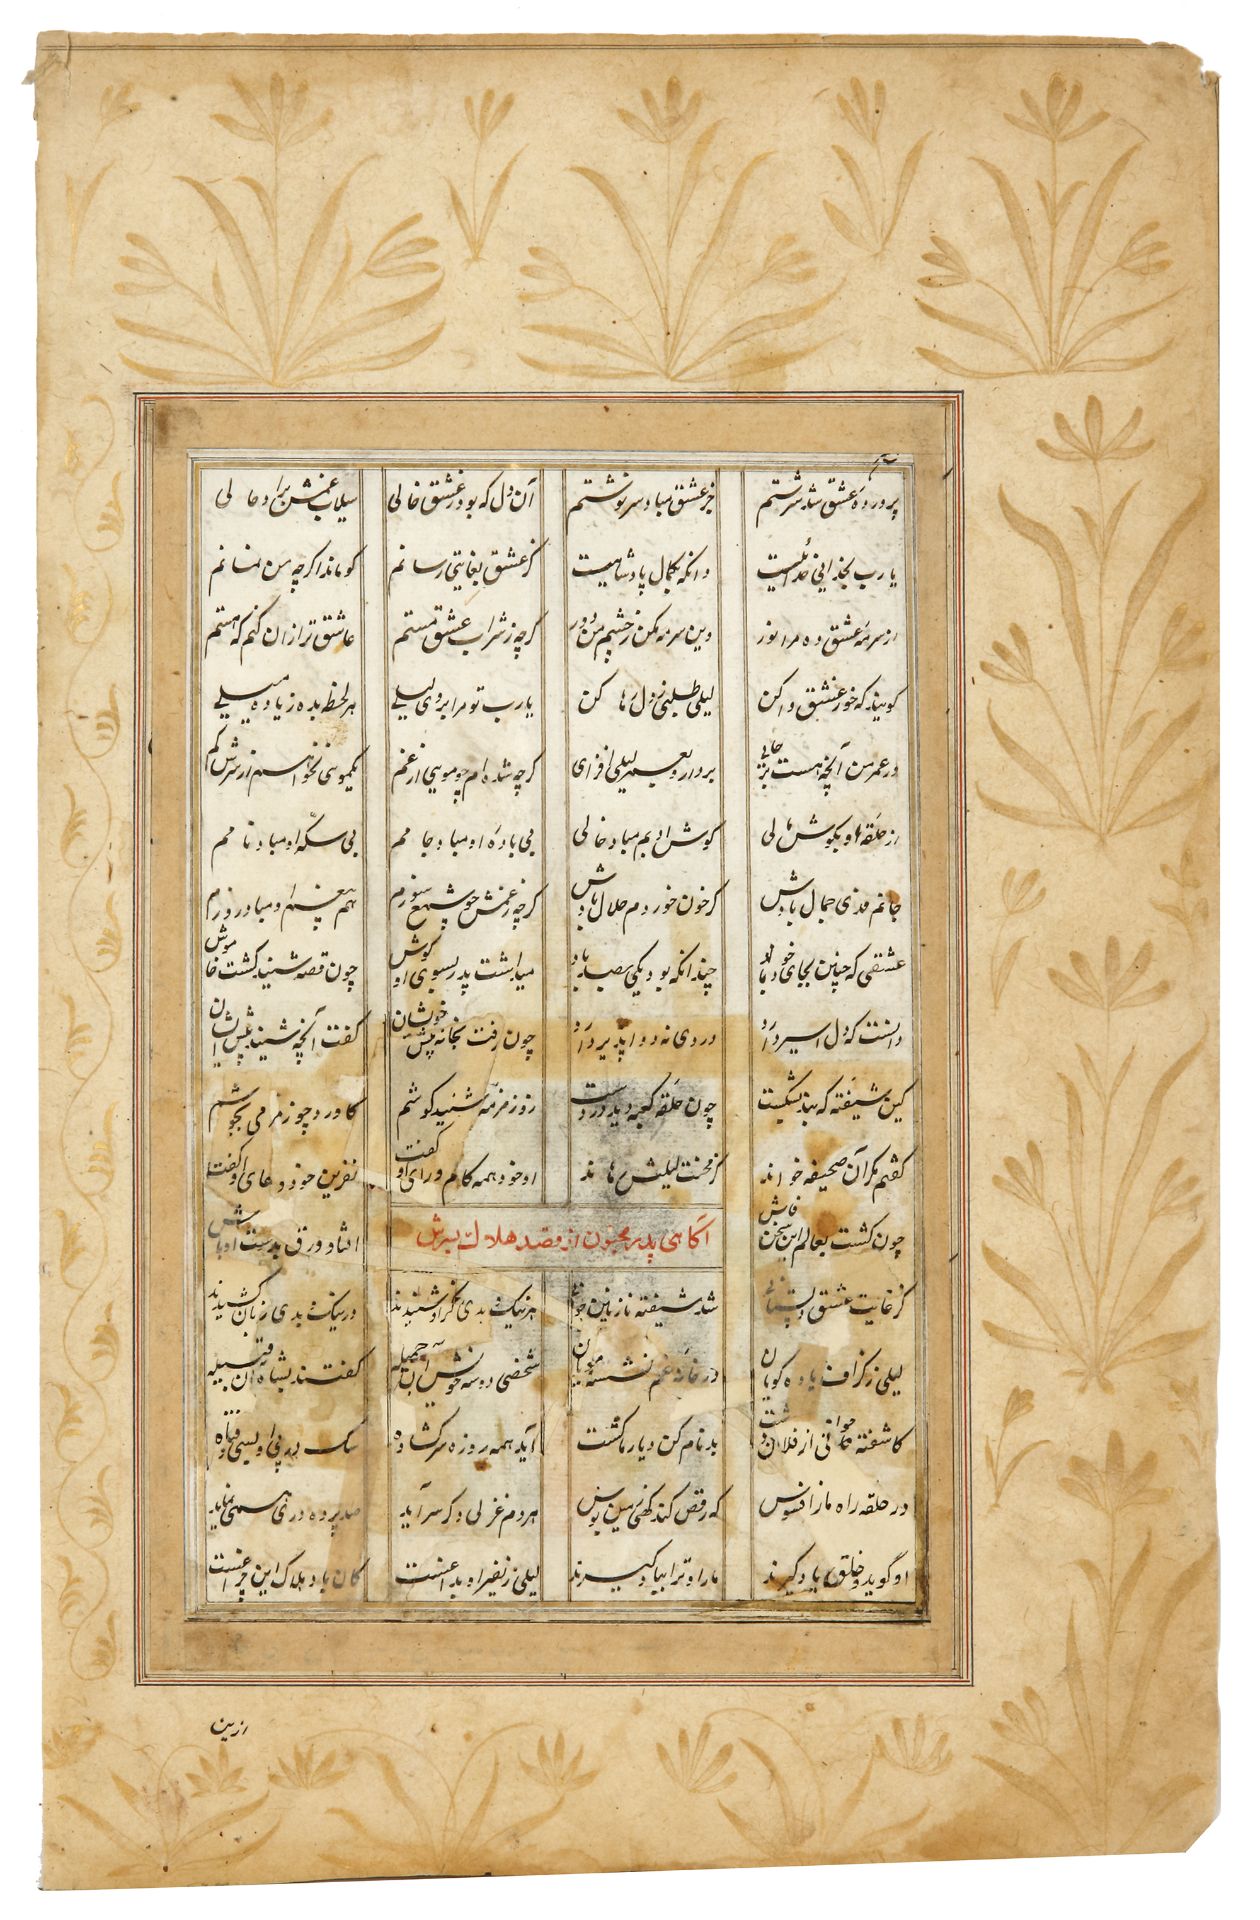 پرورده عشق شد سرشتم جز عشق مباد سرنوشتم آن دل که بود ز عشق خالی سیلاب غمش براد حالی
یارب بخدایی خداییت وانگه بکمال پادشاهیت کز عشق بغایتی رسانم کو ماند اگر چه من نمانم
از سرمه عشق ده مرا نور وین سرمه مکن ز چشم من دور گرچه ز شراب عشق مستم عاشق تر ازان کنم که هستم
گویند که خو ز عشق واکن لیلی طلبی ز دل رها کن یارب تو مرا بروی لیلی هر لحظه بده زیاده میلی
در عمر من آنچه هست بر جای بردار و بعمر لیلی افزای گرچه شده ام چو مویی از غم یکموی نخواهم از سرش کم
از حلقه او بگوش مالی گوش ادبم مباد خالی بی باده او مباد جامم بی سکه او مباد نامم
جانم فدی جمال بادش گر خون خوردم حلال بادش گرچه ز غمش چو شمع سوزم هم بی غم او مباد روزم
عشقی که چنین بجای خود باد چندانکه بود یکی بصد باد میداشت پدر بسوی او گوش چون قصه شنید گشت خاموش
دانست که دل اسیر دارد دردی نه دوا پذیر دارد چون رفت بخانه پیش خویشان گفت آنچه شنید پیش ایشان
کین شیفته که بند بشکست چون حلقه کعبه دید در دست زو زمزمه شنید گوشم کاورد چو زمزمی بجوشم
گفتم مگر آن صحیفه خواند کز محنت لیلیش رهاند او خود همه کام ورای او گفت نفرین خود و دعای او گفت
آگاهی پدر مجنون از قصد هلاک پسرش
چون گشت بعالم این سخن فاش افتاد ورق بدست اوباش
کز غایت عشق دلستانی شد شیفته نازنین جوانی هر نیک و بدی کزو شنیدند در نیک و بدی زبان کشیدند
لیلی ز گزاف یاوه گویان در خانه غم نشسته مویان شخصی دو سه خوش آن جمیله گفتند بشاه آن قبیله
کاشفته جوانی از فلان دشت بدنام کن دیار ما گشت آید همه روزه سر گشاده سگ در پی او بسی فتاده
در حلقه راه ما ز افسوس که رقص کند گهی زمین بوس هر دم غزلی دگر سراید صد پرده دری همی نماید
او گوید و خلق یاد گیرند ما را و ترا بباد گیرند لیلی ز نفیر او بداغست کان باد هلاک این چراغست
ازین